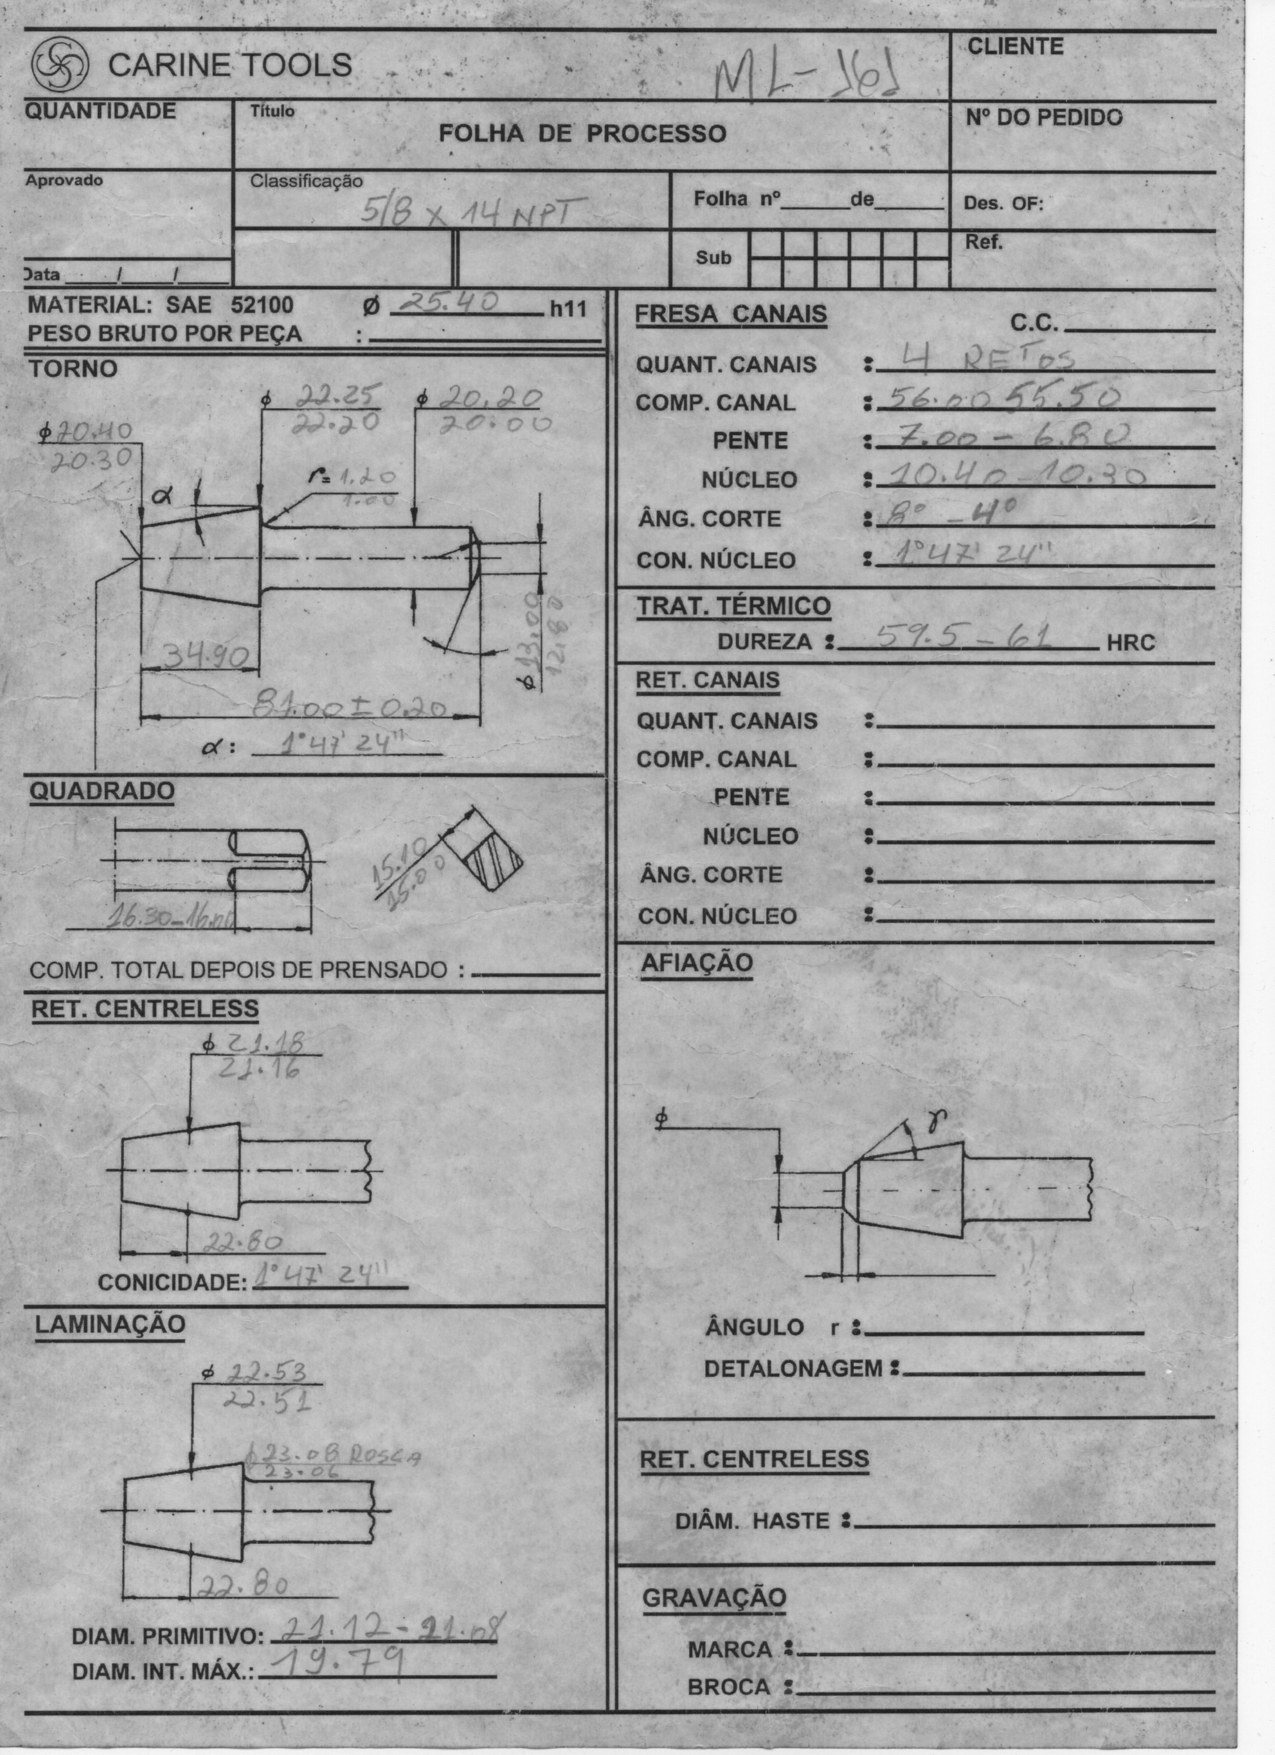 CARINE TOOLS
ML-161
CLIENTE
QUANTIDADE
Título
FOLHA DE PROCESSO
Nº DO PEDIDO
Aprovado
Classificação
5/8 x 14 NPT
Folha nº______de______
Des. OF:
Sub
Ref.
Data ____/____/____
MATERIAL: SAE 52100 Ø 25.40 h11
PESO BRUTO POR PEÇA :
TORNO
ϕ 22.25
22.20
ϕ 20.20
20.00
ϕ20.40
20.30
α
r= 1.20
1.00
ϕ 13.00
12.80
34.90
81.00 ± 0.20
α: 1°47' 24"
QUADRADO
15.10
15.00
16.30-16.00
COMP. TOTAL DEPOIS DE PRENSADO :
RET. CENTRELESS
ϕ 21.18
21.16
22.80
CONICIDADE: 1°47' 24"
LAMINAÇÃO
ϕ 22.53
22.51
ϕ 23.08 ROSCA
23.06
22.80
DIAM. PRIMITIVO: 21.12 - 21.08
DIAM. INT. MÁX.: 19.79
FRESA CANAIS
C.C.
QUANT. CANAIS : 4 RETOS
COMP. CANAL : 56.00 55.50
PENTE : 7.00 - 6.80
NÚCLEO : 10.40 - 10.30
ÂNG. CORTE : 8° - 4°
CON. NÚCLEO : 1°47' 24"
TRAT. TÉRMICO
DUREZA : 59.5 - 61 HRC
RET. CANAIS
QUANT. CANAIS :
COMP. CANAL :
PENTE :
NÚCLEO :
ÂNG. CORTE :
CON. NÚCLEO :
AFIAÇÃO
ϕ
r
ÂNGULO r :
DETALONAGEM :
RET. CENTRELESS
DIÂM. HASTE :
GRAVAÇÃO
MARCA :
BROCA :